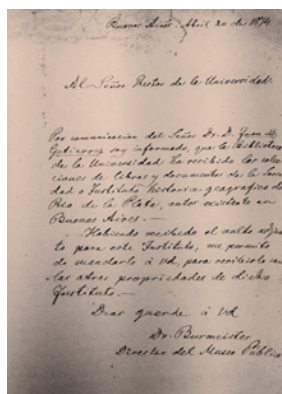 Buenos Aires. Abril 20 de 1874
Al Señor Rector de la Universidad.
Por comunicacion del Señor Dr. D. Juan M.
Gutierrez soy informado, que la Biblioteca
de la Universidad ha recibido las colec-
ciones de libros y documentos de la Socie-
dad o Instituto historico geografico del
Rio de la Plata, antes existente en
Buenos Aires.—
Habiendo recibido el adjun-
to para este Instituto, me permito
de mandarlo à Vd, para recibirlo con
las otras propriedades de dicho
Instituto.—
Dios guarde à Vd
Dr. Burmeister
Director del Museo Publico